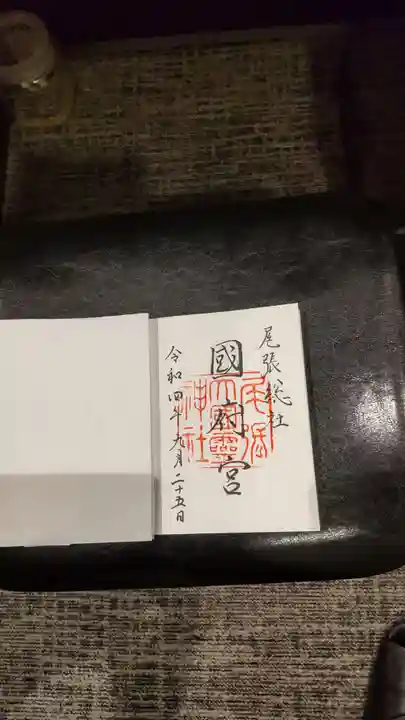 尾張総社
國府宮
尾張
大國霊
神社
令和四年九月二十五日